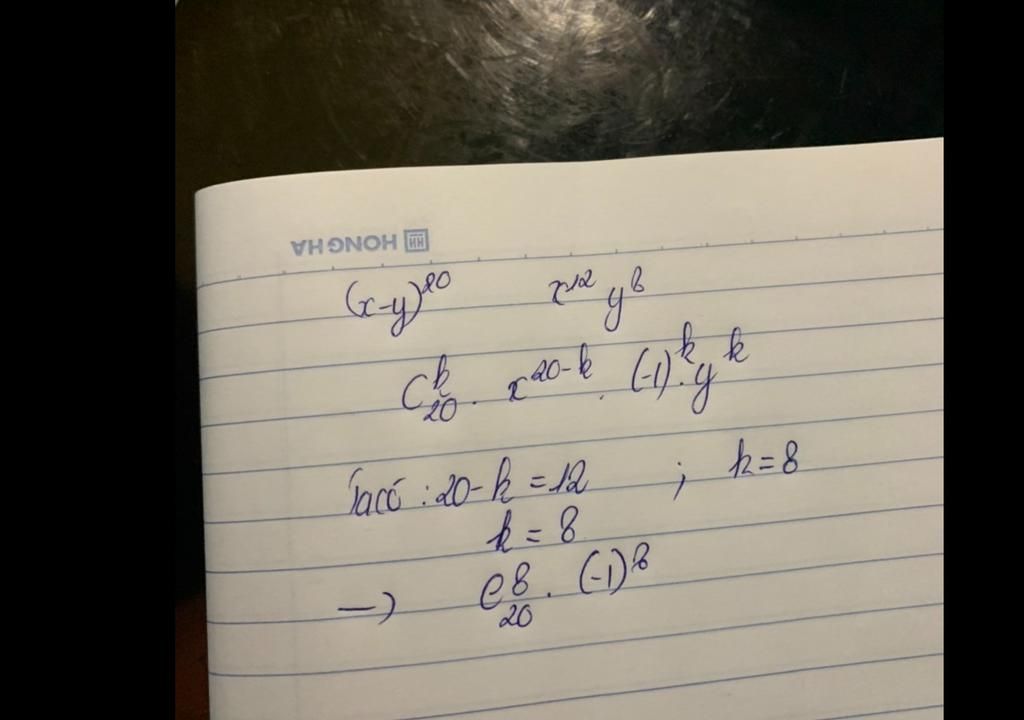 HONG HA
(x-y)²⁰ x¹² y⁸
C₂₀ᵏ . x²⁰⁻ᵏ . (-1)ᵏ . yᵏ
Ta có : 20 - k = 12 ; k = 8
k = 8
→ C₂₀⁸ . (-1)⁸